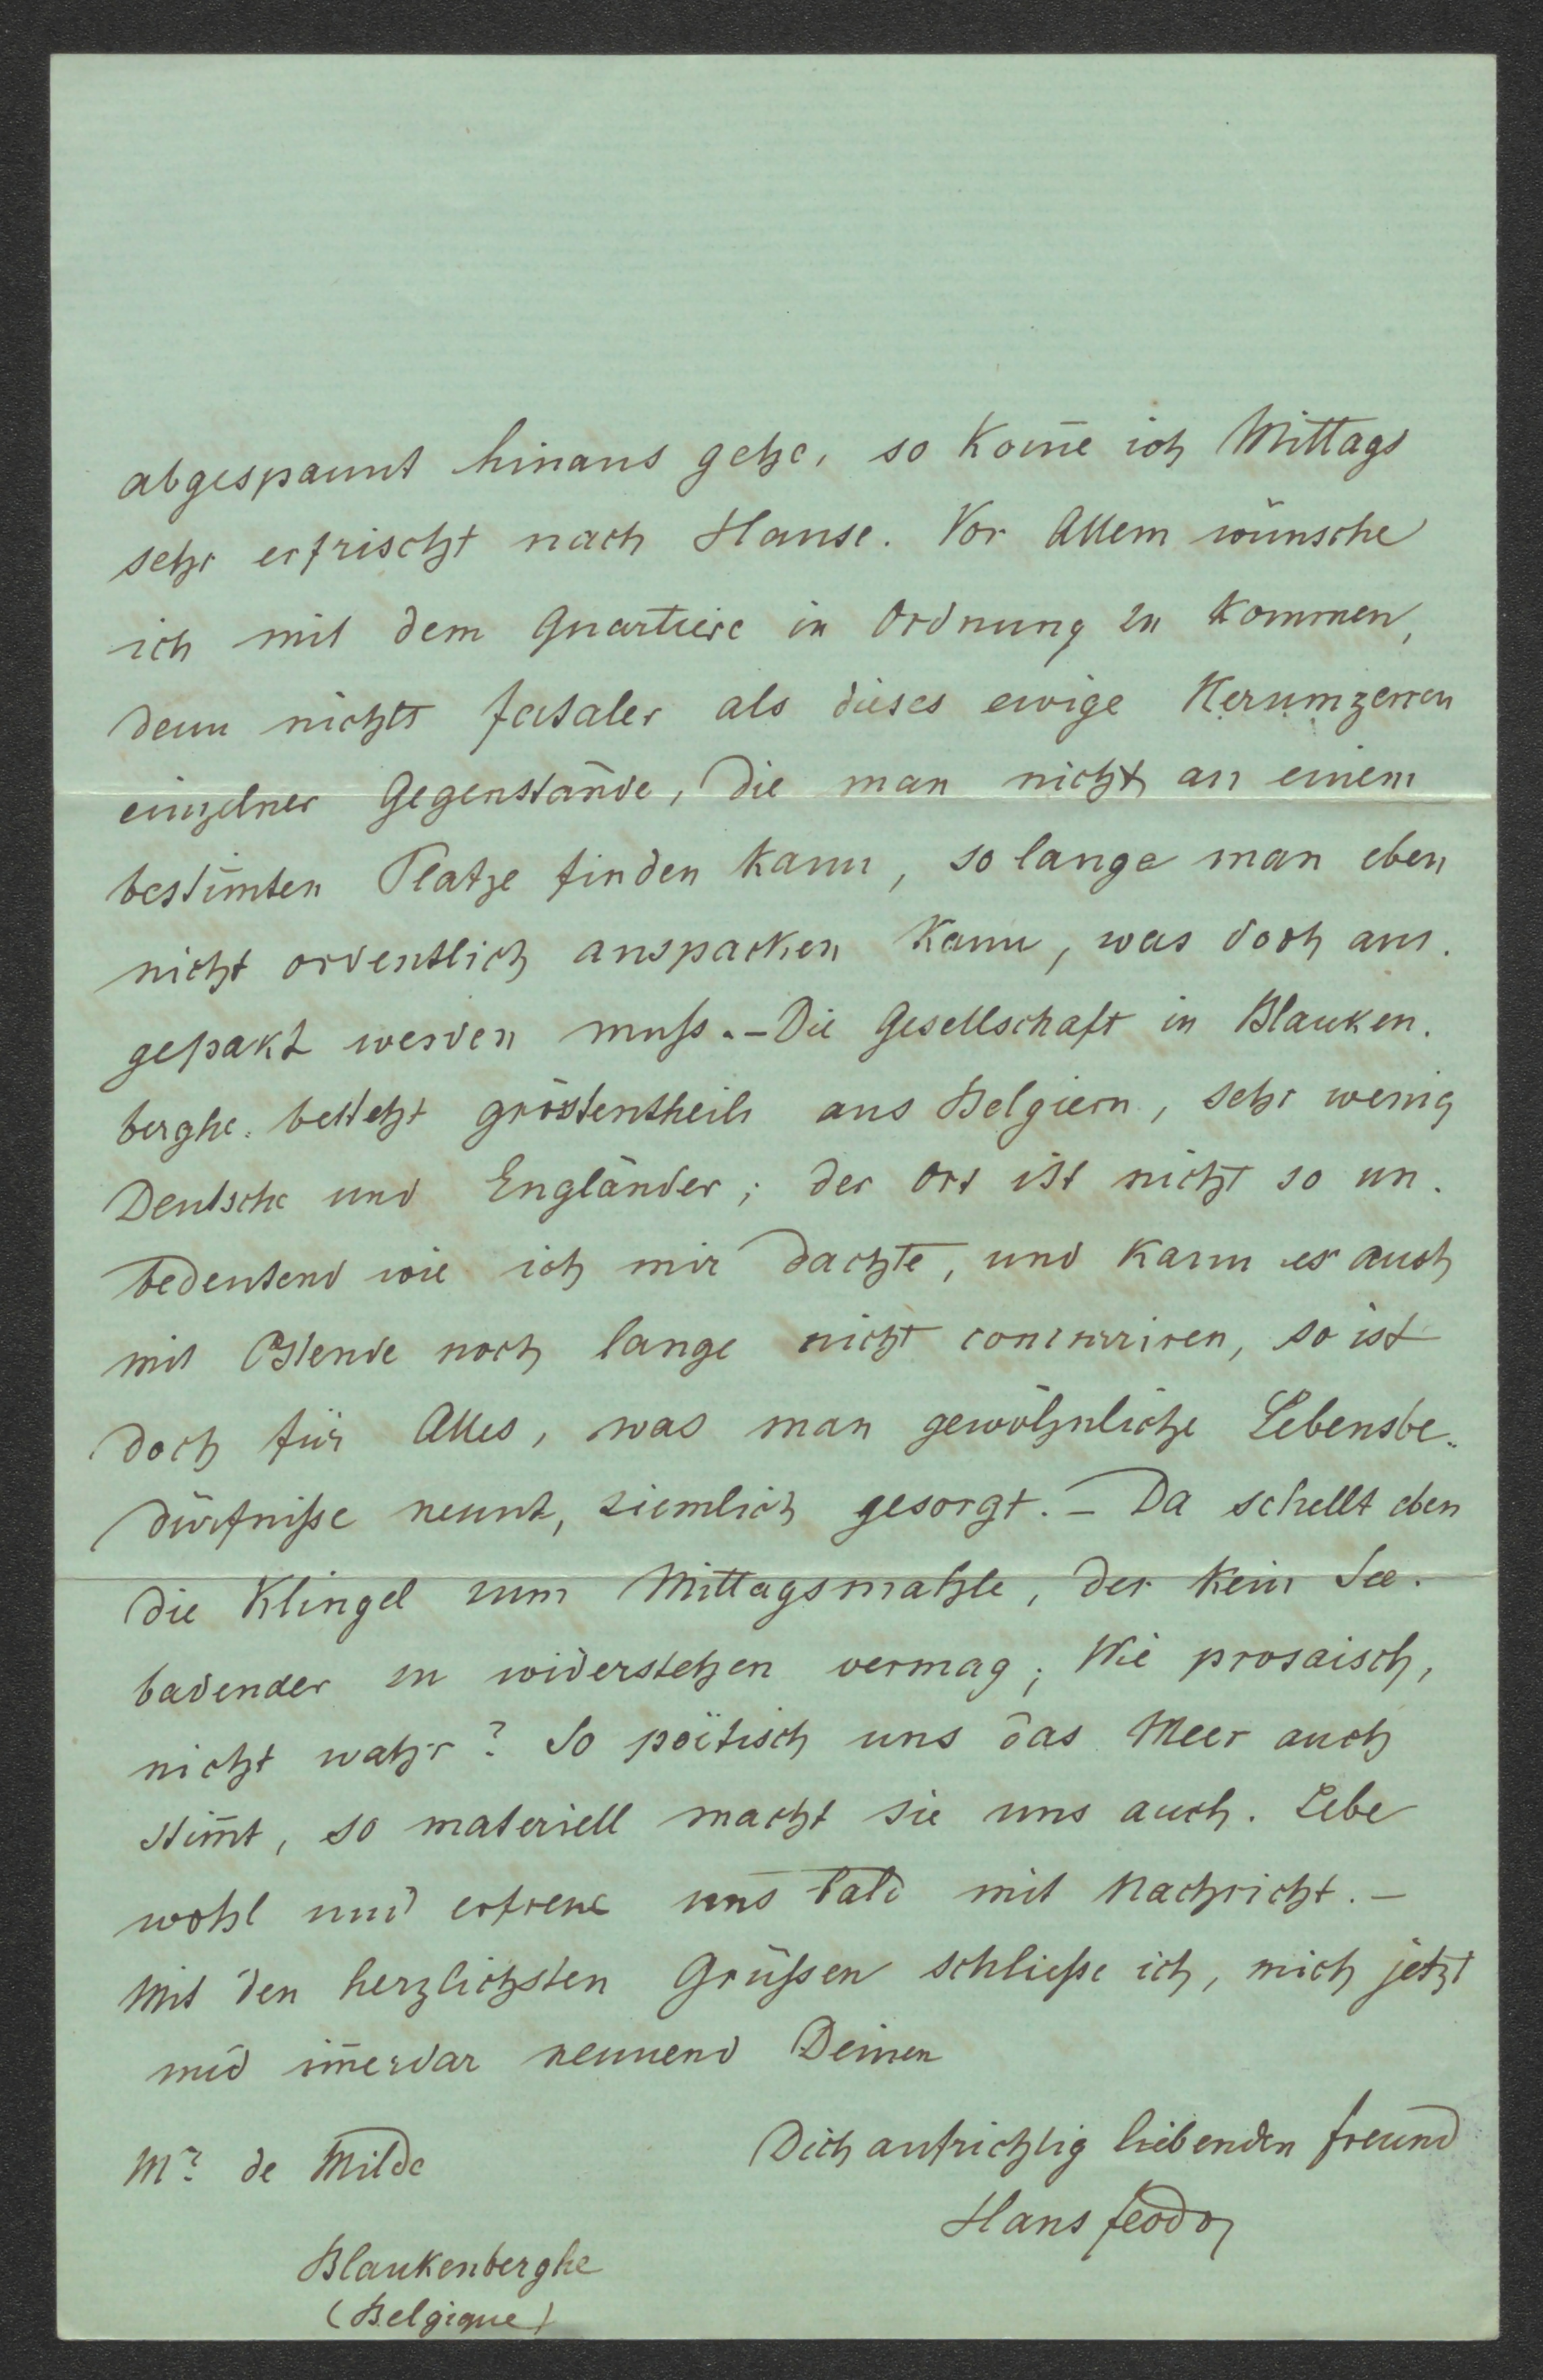 abgespannt hinaus gehe, so kom̅e ich Mittags
sehr erfrischt nach Hause. Vor Allem wünsche
ich mit dem Quartiere in Ordnung zu kommen,
denn nichts fataler als dieses ewige Herumzerren
einzelner Gegenstände, die man nicht an einem
bestim̅ten Platze finden kann, so lange man eben
nicht ordentlich auspacken kann, was doch aus-
gepakt werden muß. – Die Gesellschaft in Blanken-
berghe besteht gröstentheils aus Belgiern, sehr wenig
Deutsche und Engländer; der Ort ist nicht so un-
bedeutend wie ich mir dachte, und kann er auch
mit Ostende noch lange nicht concurriren, so ist
doch für Alles, was man gewöhnliche Lebensbe-
dürfniße nennt, ziemlich gesorgt. – Da schellt eben
die Klingel zum Mittagsmahle, der kein See-
badender zu widerstehen vermag; Wie prosaisch,
nicht wahr? So poëtisch uns das Meer auch
stim̅t, so materiell macht sie uns auch. Lebe
wohl und erfreue uns bald mit Nachricht. –
Mit den herzlichsten Grüßen schließe ich, mich jetzt
und im̅erdar nennend Deinen
Dich aufrichtig liebenden Freund
Hans Feodor
Mr de Milde
Blankenberghe
(Belgique)